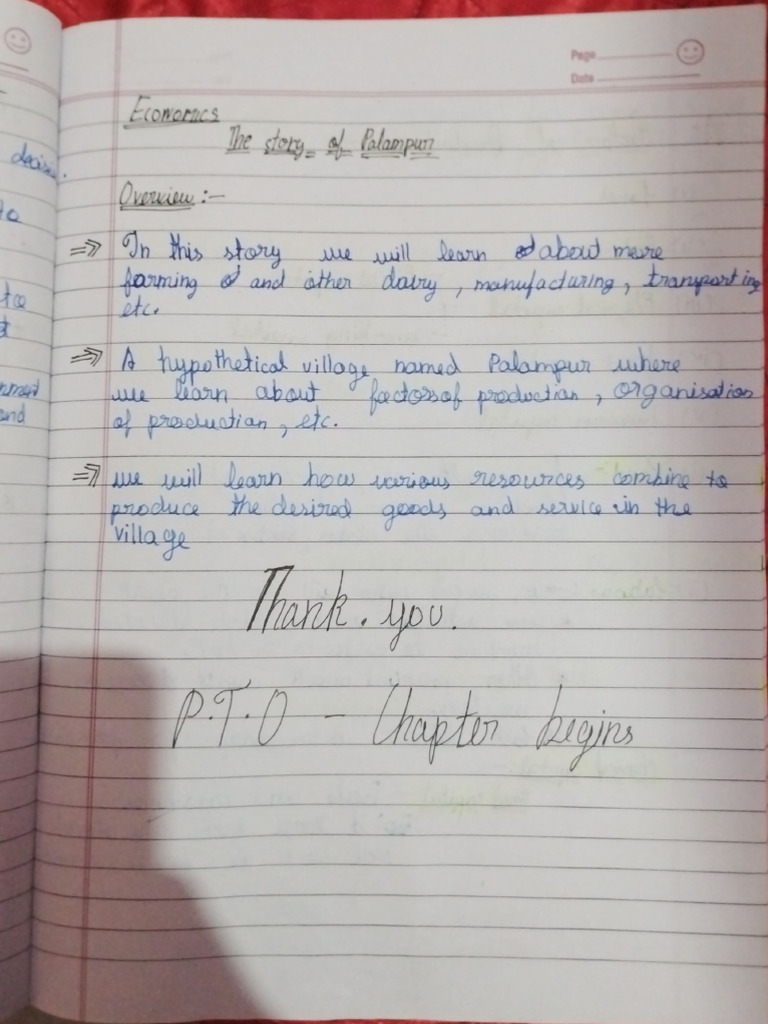 Page
Date
Economics
The story of Palampur
Overview :-
⇒ In this story we will learn about more
farming and other dairy, manufacturing, transporting
etc.
⇒ A hypothetical village named Palampur where
we learn about factors of production, organisation
of production, etc.
⇒ we will learn how various resources combine to
produce the desired goods and service in the
village
Thank. you.
P.T.O - Chapter begins
to
to
and